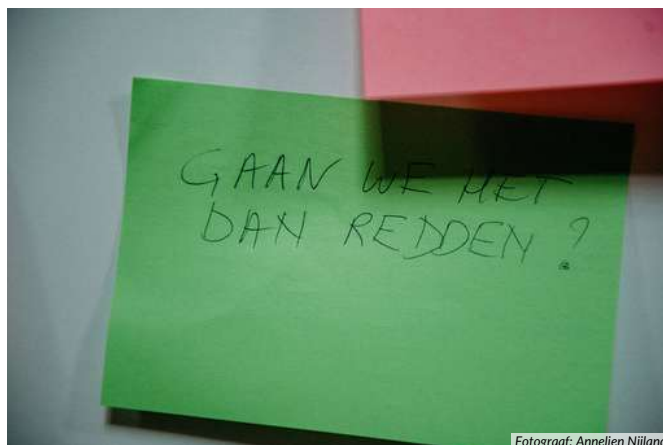 GAAN WE HET
DAN REDDEN?
Fotograaf: Annelien Nijland